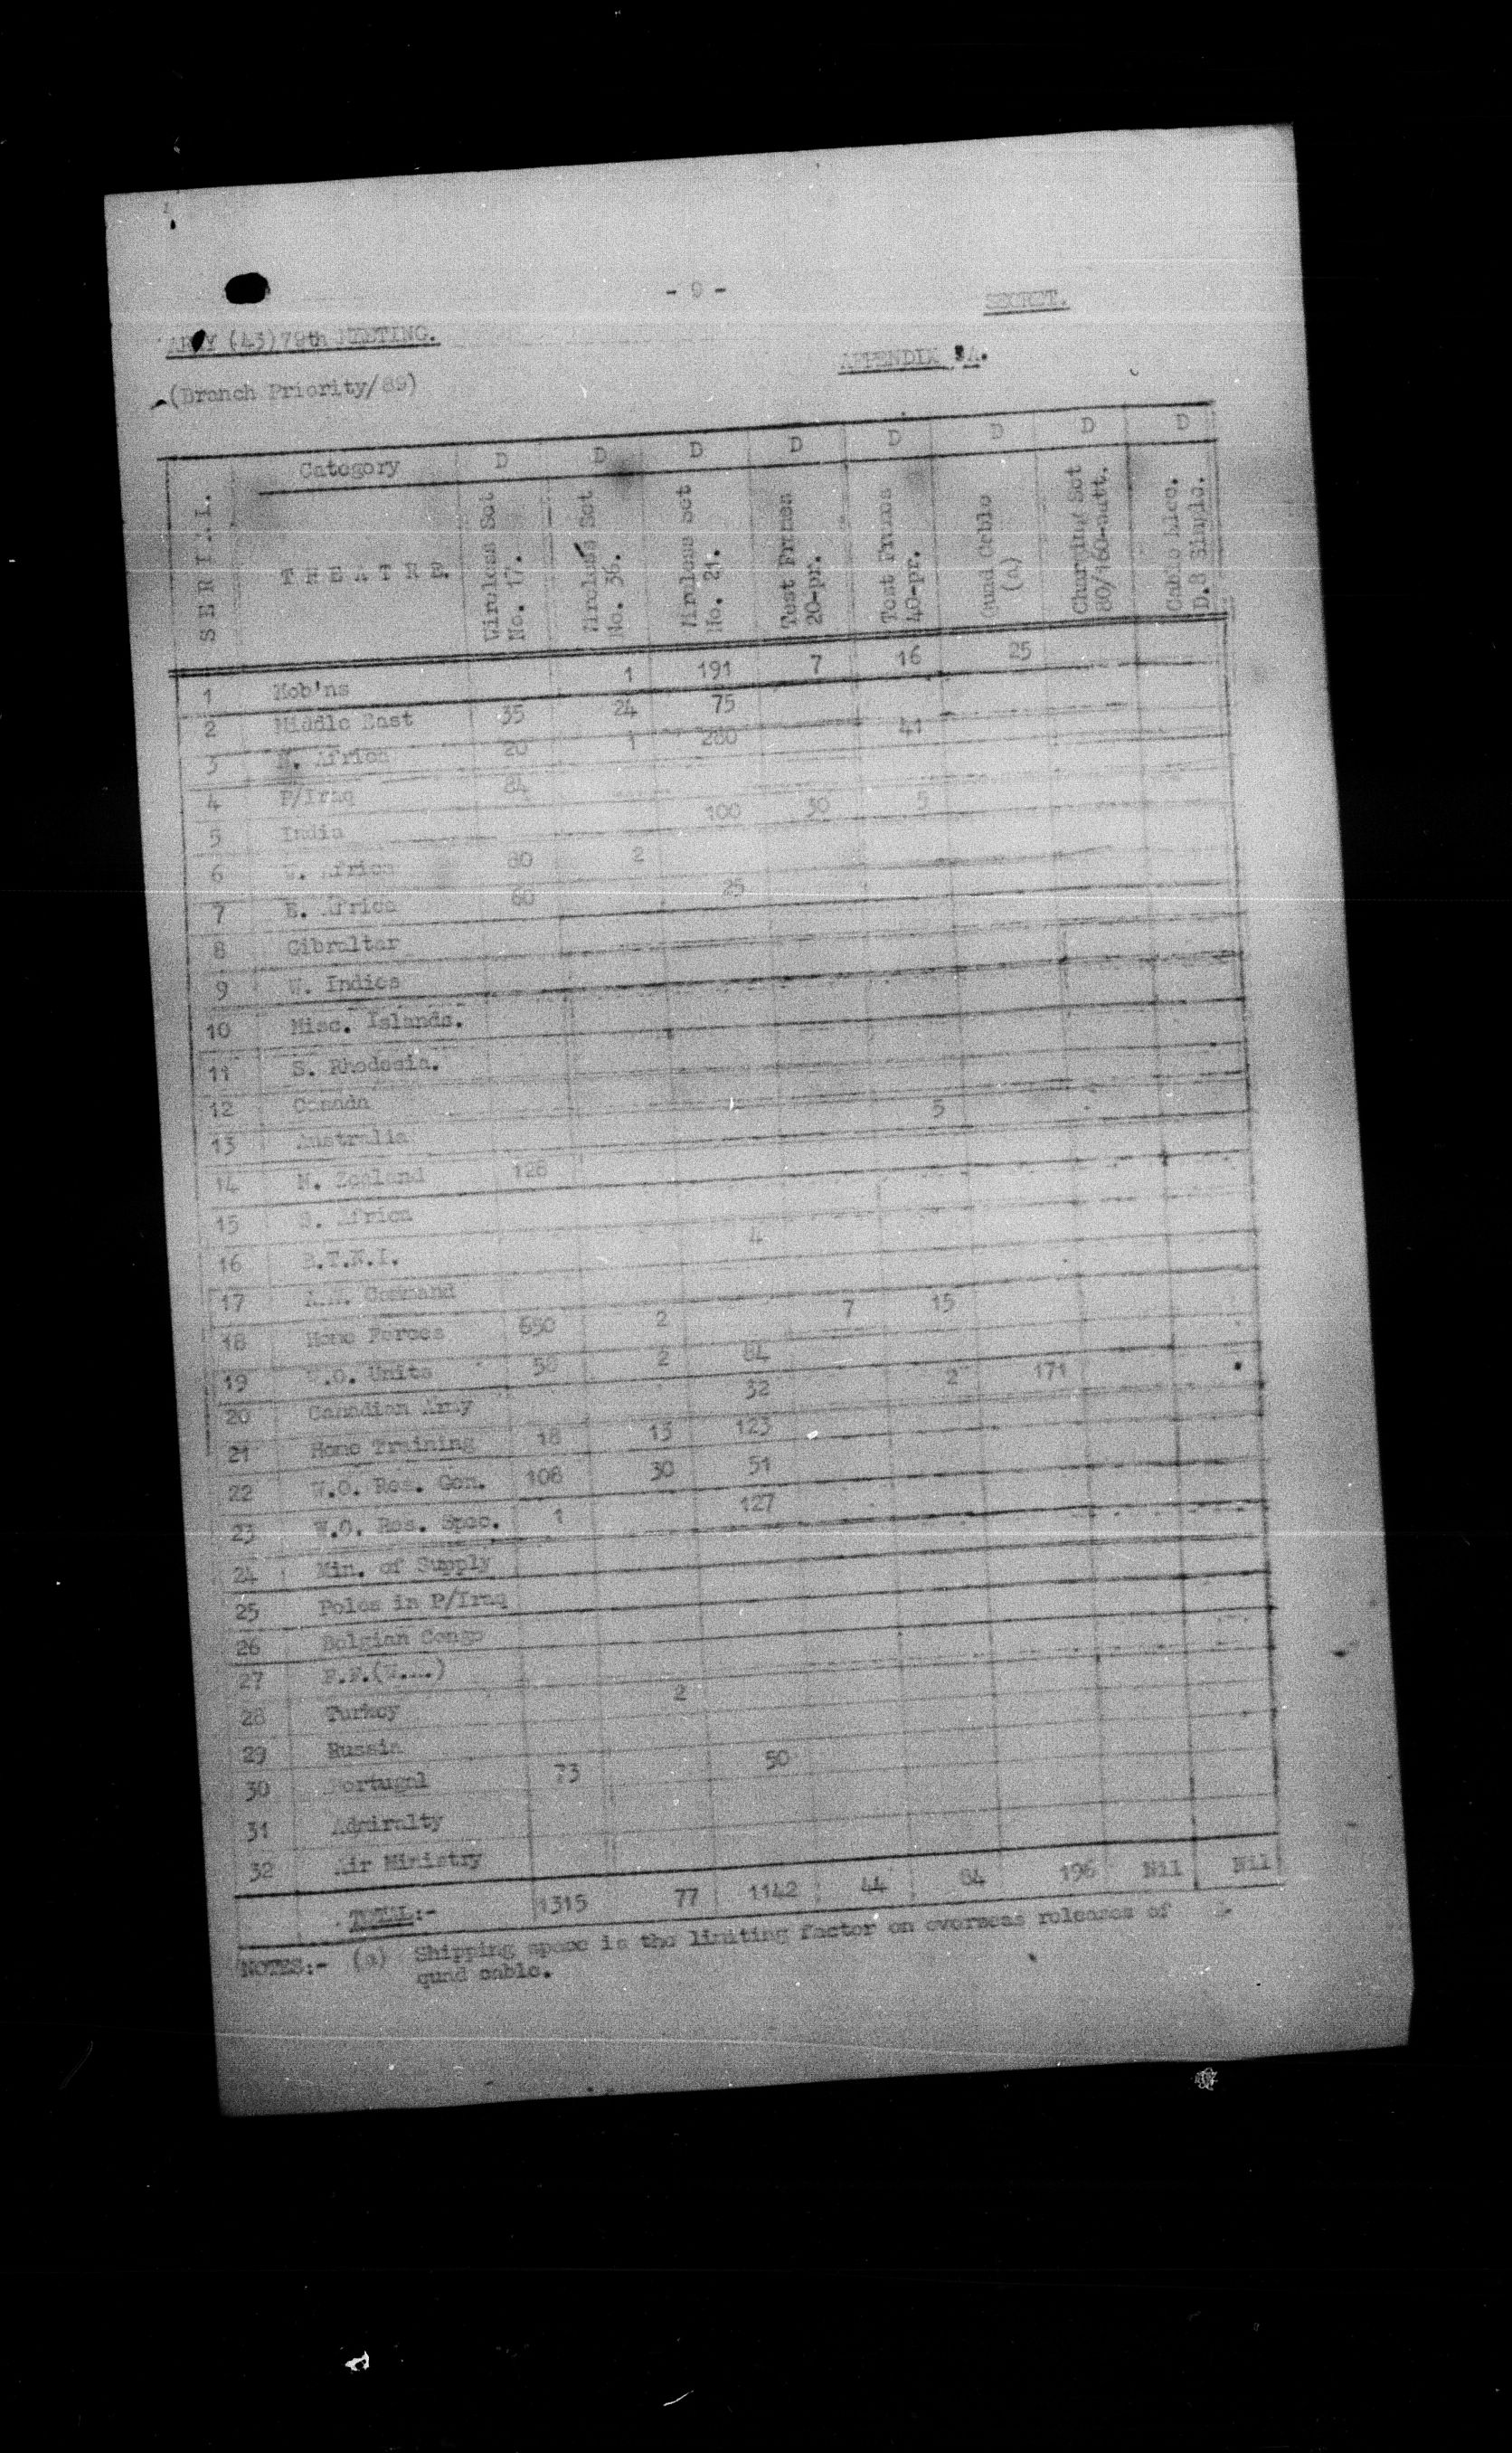 - 9 -
SECRET.
ARMY (43) 79th MEETING.
APPENDIX A.
(Branch Priority/89)
SERIAL.
Category D D D D D D D D
THEATRE.
Wireless Set No. 17.
Wireless Set No. 36.
Wireless Set No. 21.
Test Frames 20-pr.
Test Frames 40-pr.
Quad Cable (a)
Charging Set 80/160-watt.
Cable Elec. D.8 Single.
1 Mob'ns 1 191 7 16 25
2 Middle East 35 24 75
3 N. Africa 20 1 280 41
4 P/Iraq 84
5 India 100 30 5
6 W. Africa 80 2
7 E. Africa 60 25
8 Gibraltar
9 W. Indies
10 Misc. Islands.
11 S. Rhodesia.
12 Canada
13 Australia 5
14 N. Zealand 128
15 S. Africa
16 B.T.N.I. 4
17 A.A. Command
18 Home Forces 650 2 7 15
19 W.O. Units 58 2 84
20 Canadian Army 32 2 171
21 Home Training 18 13 123
22 W.O. Res. Gen. 108 30 51
23 W.O. Res. Spec. 1 127
24 Min. of Supply
25 Poles in P/Iraq
26 Belgian Congo
27 F.F.
28 Turkey 2
29 Russia
30 Portugal 73 50
31 Admiralty
32 Air Ministry
TOTAL:- 1315 77 1142 44 84 196 Nil Nil
NOTES:- (a) Shipping space is the limiting factor on overseas releases of
quad cable.